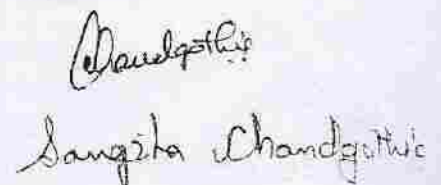 Chandgothia
Sangita Chandgothia